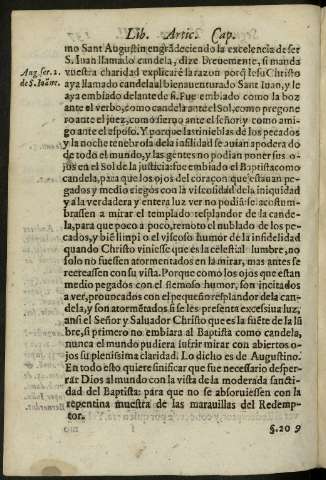 Lib. Artic. Cap.
mo Sant Augustin engrādeciendo la excelencia de ser
S. Iuan llamado candela, dize breuemente, si manda
Aug. ser. 2.
de S. Ioãn.
vuestra charidad explicarè la razon porq̃ Iesu Christo
aya llamado candela al bienauenturado Sant Iuan, y le
aya embiado delante de si. Fue embiado como la boz
ante el verbo, como candela ante el Sol, como pregone
ro ante el juez, como sieruo ante el señor y como ami-
go ante el esposo. Y porque las tinieblas de los pecados
y la noche tenebrosa de la infilidad se auian apodera do
de todo el mundo, y las gentes no podian poner sus o-
jos en el Sol de la justicia: fue embiado el Baptista como
candela, para que los ojos del coraçon que estauan pe-
gados y medio ciegos con la viscosidad de la iniquidad
y a la verdadera y entera luz ver no podiā: se acostum-
brassen a mirar el templado resplandor de la cande-
la, para que poco a poco, remoto el nublado de los pe-
cados, y biē limpio el viscoso humor de la infidelidad
quando Christo viniesse que es la celestial lumbre, no
solo no fuessen atormentados en la mirar, mas antes se
recreassen con su vista. Porque como los ojos que estan
medio pegados con el flemoso humor, son incitados
a ver, prouocados con el pequeño resplandor de la can-
dela, y son atormētados si se les presenta excessiua luz,
ansi el Señor y Saluador Christo que es la fuēte de la lū
bre, si primero no embiara al Baptista como candela,
nunca el mundo pudiera sufrir mirar con abiertos o-
jos su plenissima claridad. Lo dicho es de Augustino.
En todo esto quiere sinificar que fue necessario desper-
rar Dios al mundo con la vista de la moderada sancti-
dad del Baptista: para que no se absoruiessen con la
repentina muestra de las marauillas del Redemp-
tor.
§. 20 9